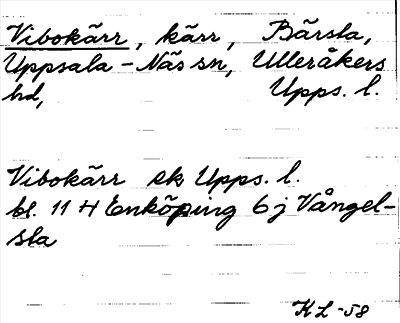 Vibokärr, kärr, Bärsta,
Uppsala-Näs sn, Ulleråkers
hd, Upps. l.
Vibokärr ek Upps. l.
bl. 11 H Enköping 6 j Vångel-
sta
KL -58